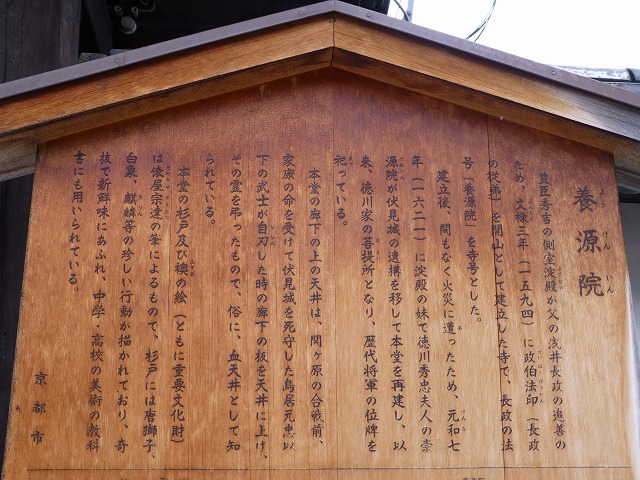 養源院
ようげんいん
豊臣秀吉の側室淀殿が父の浅井長政の追善の
ため、文禄三年（一五九四）に政伯法印（長政
の従弟）を開山として建立した寺で、長政の法
号「養源院」を寺号とした。
建立後、間もなく火災に遭ったため、元和七
年（一六二一）に淀殿の妹で徳川秀忠夫人の崇
源院が伏見城の遺構を移して本堂を再建し、以
来、徳川家の菩提所となり、歴代将軍の位牌を
祀っている。
本堂の廊下の上の天井は、関ヶ原の合戦前、
家康の命を受けて伏見城を死守した鳥居元忠以
下の武士が自刃した時の廊下の板を天井に上げ、
その霊を弔ったもので、俗に、血天井として知
られている。
本堂の杉戸及び襖の絵（ともに重要文化財）
は俵屋宗達の筆によるもので、杉戸には唐獅子、
白象、麒麟等の珍しい行動が描かれており、奇
抜で新鮮味にあふれ、中学・高校の美術の教科
書にも用いられている。
京都市